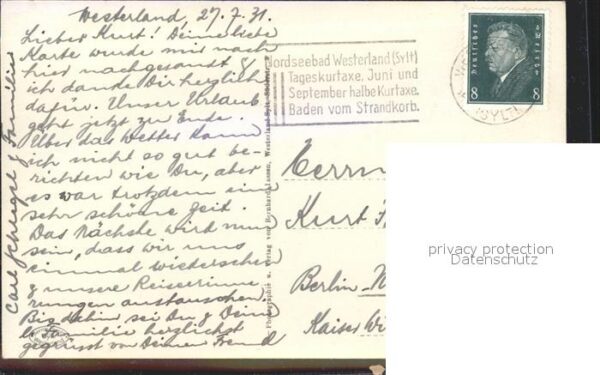 Westerland, 27.7.31.
Lieber Kurt! Deine liebe
Karte wurde mir nach
hier nachgesandt &
ich danke Dir herzlich
dafür. Unser Urlaub
geht jetzt zu Ende.
Über das Wetter kann
ich nicht so gut be-
richten wie Du, aber
es war trotzdem eine
sehr schöne Zeit.
Das Nächste wird nun
sein, dass wir uns
einmal wiedersehen
& unsere Reiseerinne
rungen austauschen.
Bis dahin sei Du & Deine
l. Familie herzlichst
gegrüsst von Deinem Freund
Carl & Familie
ordseebad Westerland (Sylt)
Tageskurtaxe. Juni und
September halbe Kurtaxe.
Baden vom Strandkorb.
Deutsches Reich
8 8
(SYLT)
Photographie u. Verlag von Bernhard Lassen, Westerland-Sylt
Herrn
Kurt
Berlin-N
Kaiser Wi
privacy protection
Datenschutz